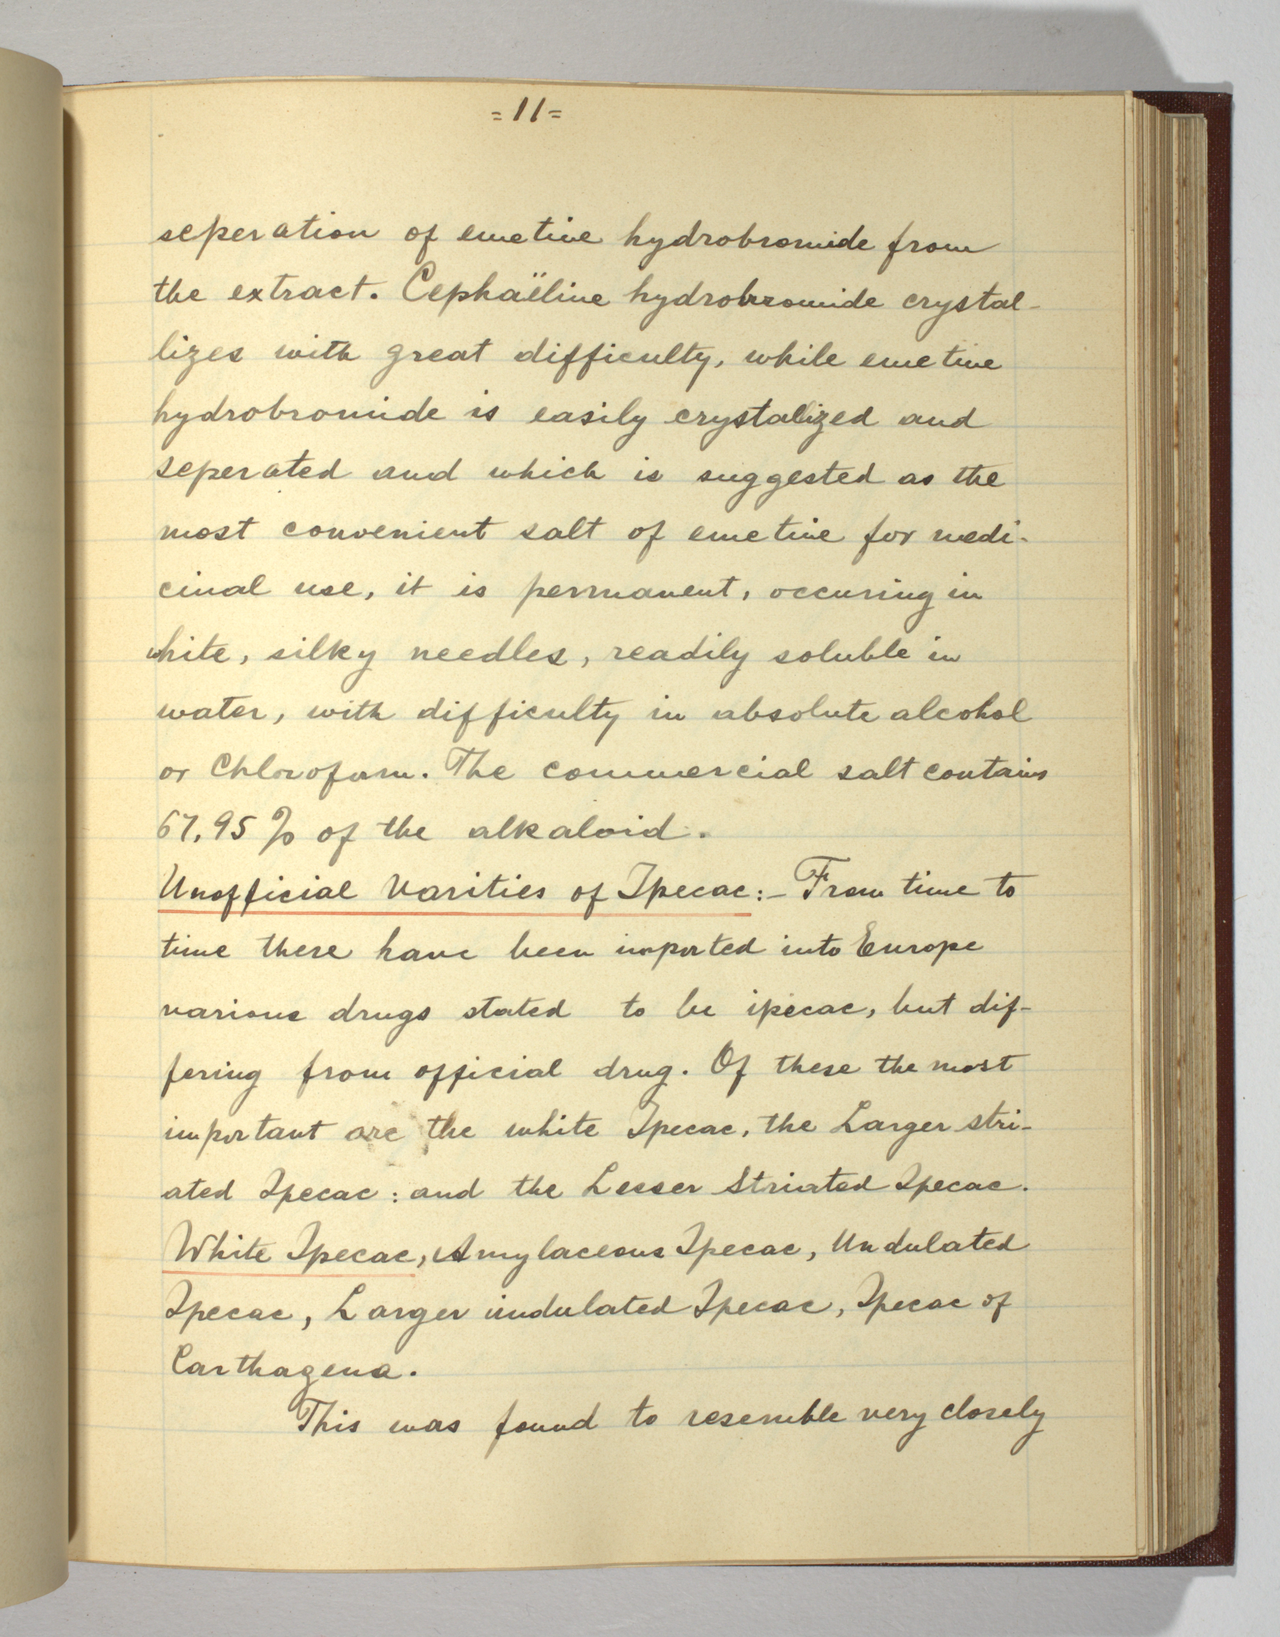 =11=
seperation of emetine hydrobromide from
the extract. Cephaëline hydrobromide crystal-
lizes with great difficulty, while emetine
hydrobromide is easily crystalized and
seperated and which is suggested as the
most convenient salt of emetine for medi-
cinal use, it is permanent, occuring in
white, silky needles, readily soluble in
water, with difficulty in absolute alcohol
or Chloroform. The commercial salt contains
67.95 % of the alkaloid.
Unofficial Varities of Ipecac:- From time to
time there have been imported into Europe
various drugs stated to be ipecac, but dif-
fering from official drug. Of these the most
important are the white Ipecac, the Larger stri-
ated Ipecac: and the Lesser Striated Ipecac.
White Ipecac, Amylaceous Ipecac, Undulated
Ipecac, Larger undulated Ipecac, Ipecac of
Carthagena.
This was found to resemble very closely